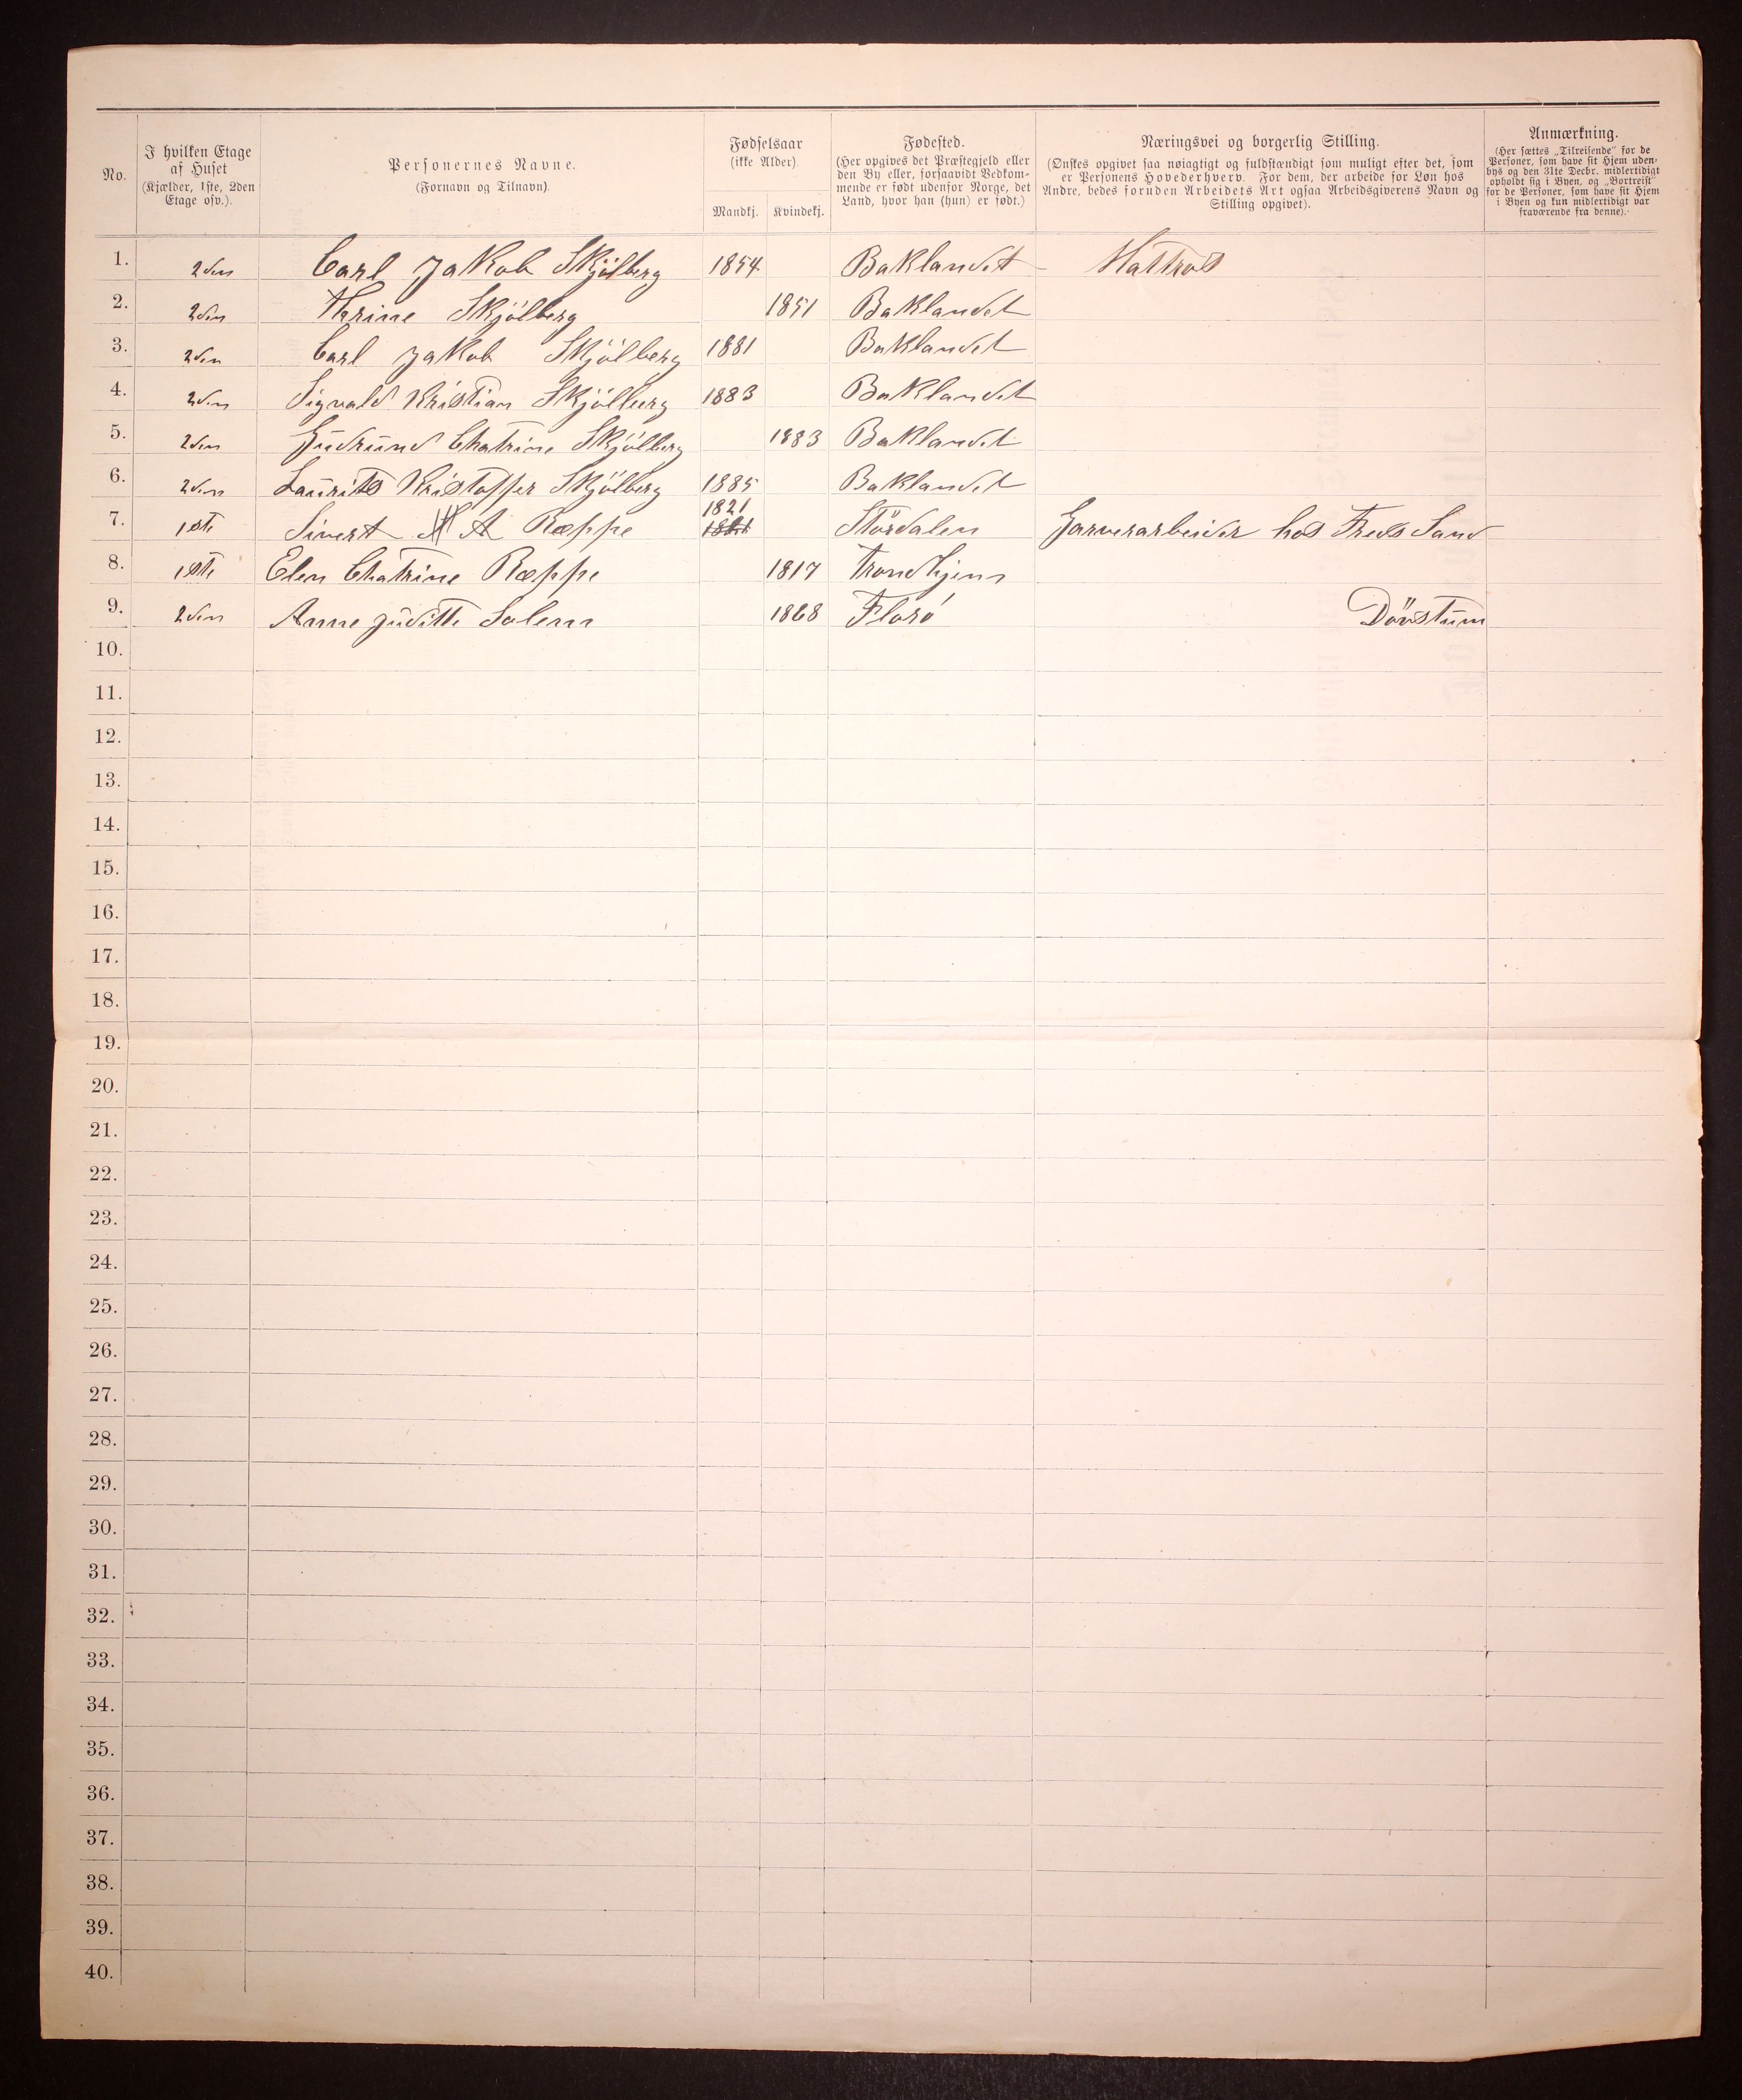 No.
I hvilken Etage af Huset (Kjælder, 1ste, 2den Etage osv.).
Personernes Navne. (Fornavn og Tilnavn).
Fødselsaar (ikke Alder).
Mandkj. Kvindekj.
Fødested. (Her opgives det Præstegjeld eller den By eller, forsaavidt Vedkommende er født udenfor Norge, det Land, hvor han (hun) er født.)
Næringsvei og borgerlig Stilling. (Ønskes opgivet saa nøiagtigt og fuldstændigt som muligt efter det, som er Personens Hovederhverv. For dem, der arbeide for Løn hos Andre, bedes foruden Arbeidets Art ogsaa Arbeidsgiverens Navn og Stilling opgivet).
Anmærkning. (Her sættes „Tilreisende" for de Personer, som have sit Hjem udenbys og den 31te Decbr. midlertidigt opholdt sig i Byen, og „Bortreist" for de Personer, som have sit Hjem i Byen og kun midlertidigt var fraværende fra denne).
1. 2den Carl Jakob Skjölberg 1854 Baklandet Mattros
2. 2den Thrine Skjölberg 1851 Baklandet
3. 2den Carl Jakob Skjölberg 1881 Baklandet
4. 2den Sigvald Kristian Skjölberg 1883 Baklandet
5. 2den Gudrund Chatrine Skjölberg 1883 Baklandet
6. 2den Laurits Kristoffer Skjölberg 1885 Baklandet
7. 1ste Sivert A Ræppe 1821 Stördalen Garverarbeider hos Freds Sand
8. 1ste Elen Chatrine Ræppe 1817 Trondhjem
9. 2den Anne Juditte Solem 1868 Florö Dövstum
10.
11.
12.
13.
14.
15.
16.
17.
18.
19.
20.
21.
22.
23.
24.
25.
26.
27.
28.
29.
30.
31.
32.
33.
34.
35.
36.
37.
38.
39.
40.